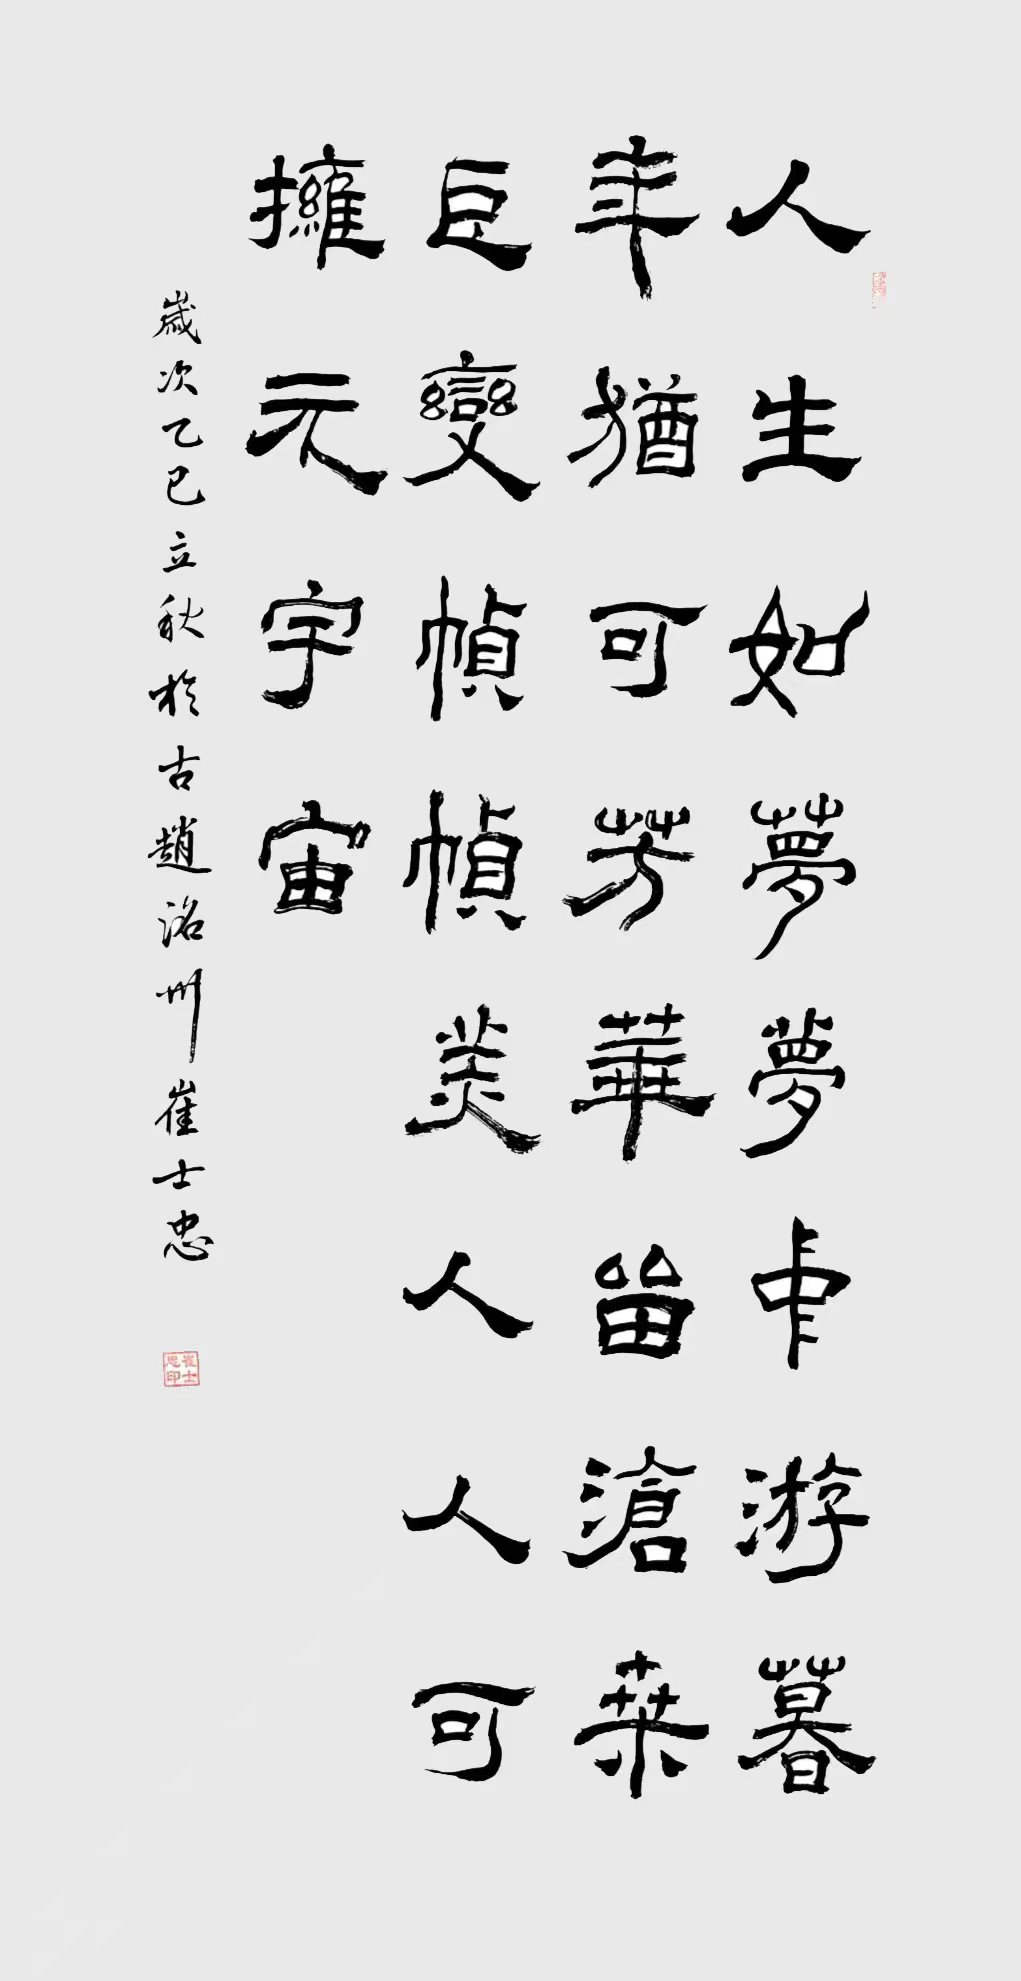 人生如夢夢中游暮
年猶可芳華留滄桑
巨變幀幀美人人可
擁元宇宙
歲次乙巳立秋於古趙洺州崔士忠
崔士忠印